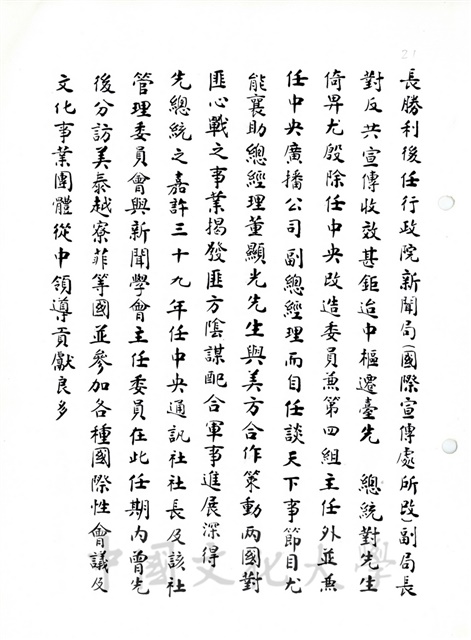 21
長勝利後任行政院新聞局(國際宣傳處所改)副局長
對反共宣傳收效甚鉅迨中樞遷臺先　總統對先生
倚畀尤殷除任中央改造委員兼第四組主任外並兼
任中央廣播公司副總經理而自任談天下事節目尤
能襄助總經理董顯光先生與美方合作策動兩國對
匪心戰之事業揭發匪方陰謀配合軍事進展深得
先總統之嘉許三十九年任中央通訊社社長及該社
管理委員會與新聞學會主任委員在此任期內曾先
後分訪美泰越寮菲等國並參加各種國際性會議及
文化事業團體從中領導貢獻良多
中國文化大學